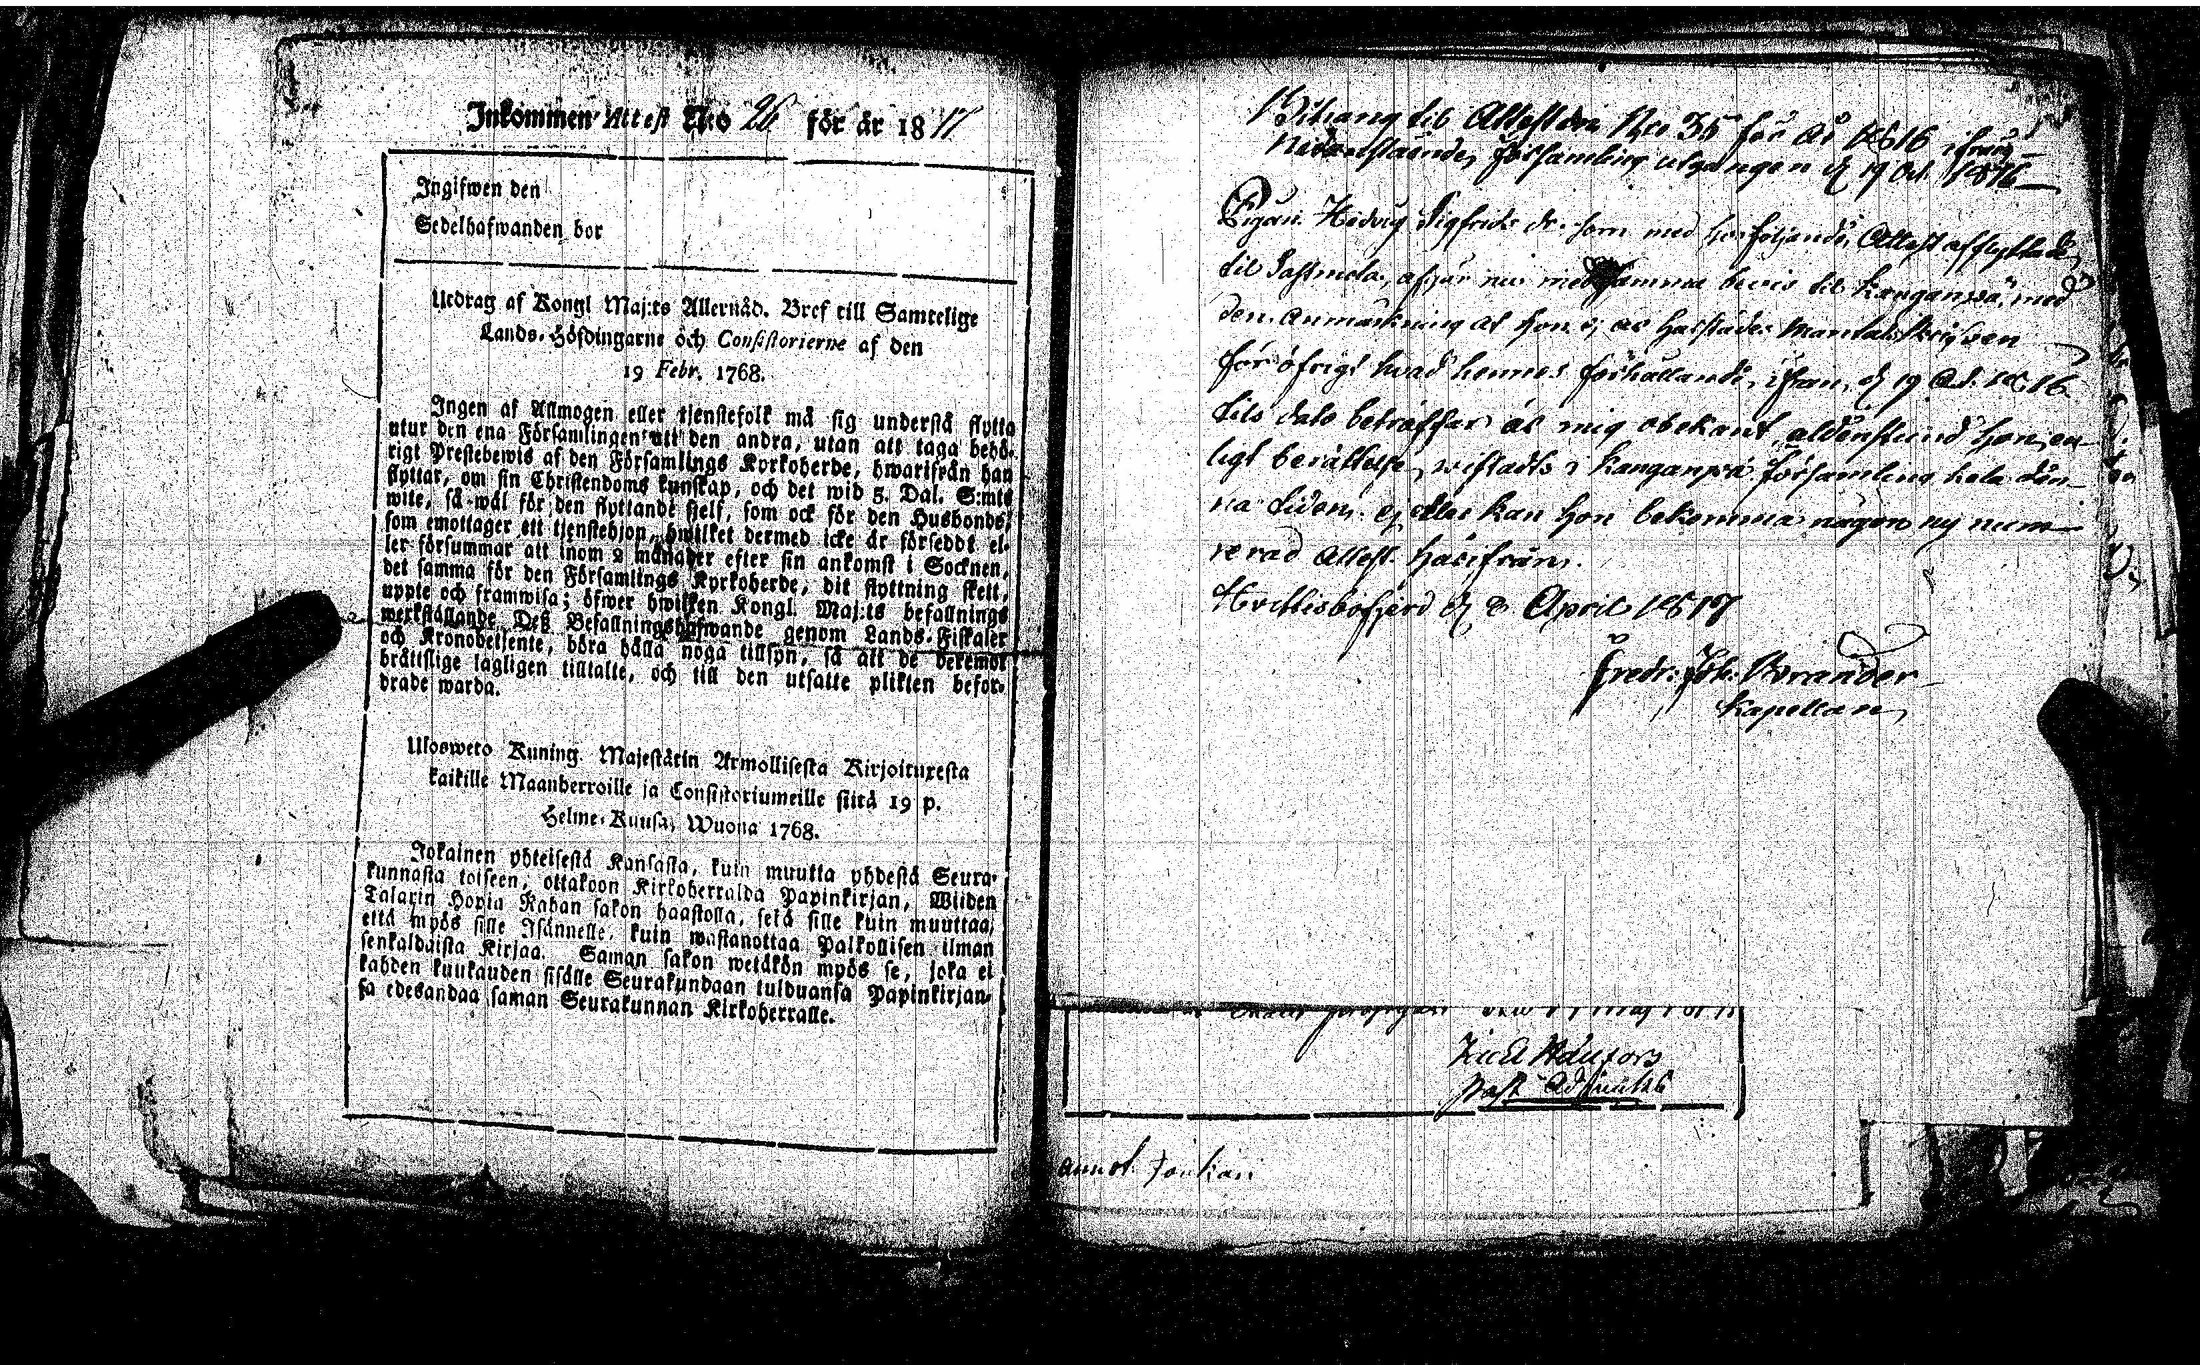 Inkommen Attest No 26 för år 1817
Ingifwen den
Sedelhafwanden bor
Utdrag af Kongl Maj:ts Allernåd. Bref till Samtelige
Lands-Höfdingarne och Consistorierne af den
19 Febr. 1768.
Ingen af Allmogen eller tjenstefolk må sig understå flytta
utur den ena Församlingen till den andra, utan att taga behö-
rigt Prestebewis af den Församlings Kyrkoherde, hwarifrån han
flyttar, om sin Christendoms kunskap, och det wid 5. Dal. S:mts
wite, så wäl för den flyttande sjelf, som ock för den Husbonde,
som emottager ett tjenstehjon, hwilket dermed icke är förseddt el-
ler försummar att inom 2 månader efter sin ankomst i Socknen,
det samma för den Församlings Kyrkoherde, dit flyttning skett,
uppte och framwisa; öfwer hwilken Kongl. Maj:ts befallnings
werkställande Deß Befallningshafwande genom Lands-Fiskaler
och Kronobetjente, böra hålla noga tillsyn, så att de deremot
bråttslige lagligen tilltalte, och till den utsatte plikten befor-
drade warda.
Ulosweto Kuning. Majestätin Armollisesta Kirjoituxesta
kaikille Maanherroille ja Consistoriumeille siitä 19 p.
Helme-Kuusa, Wuona 1768.
Jokainen yhteisestä Kansasta, kuin muutta yhdestä Seura-
kunnasta toiseen, ottakoon Kirkoherralda Papinkirjan, Wiiden
Talarin Hopia Rahan sakon haastolla, sekä sille kuin muuttaa,
että myös sille Isännelle, kuin wastanottaa Palkollisen ilman
senkaldaista Kirjaa. Saman sakon wetäkön myös se, joka ei
kahden kuukauden sisälle Seurakundaan tulduansa Papinkirjan-
sa edesandaa saman Seurakunnan Kirkoherralle.
Bihang till Attesten No 35 för år 1816 ifrån
nedanstående församling utgången d 19 Oct. 1816
Pigan Hedvig Sigfrids dr. som med härföljande Attest afflyttade
til Sastmola, afgår nu med samma bevis til Kanganpää, med
den anmärkning at hon ej är härstädes Mantalskrifven
för öfrigt hvad hennes förhållande, ifrån d 19 Oct. 1816
tils dato beträffar är mig obekant, aldenstund hon, en-
ligt berättelse, vistadts i Kanganpää församling hela den-
na tiden. ej eller kan hon bekomma någon ny num-
rerad Attest härifrån.
Hvittisbofjerd d 8 April 1817
Fredr. Joh. Brander
Kapellan